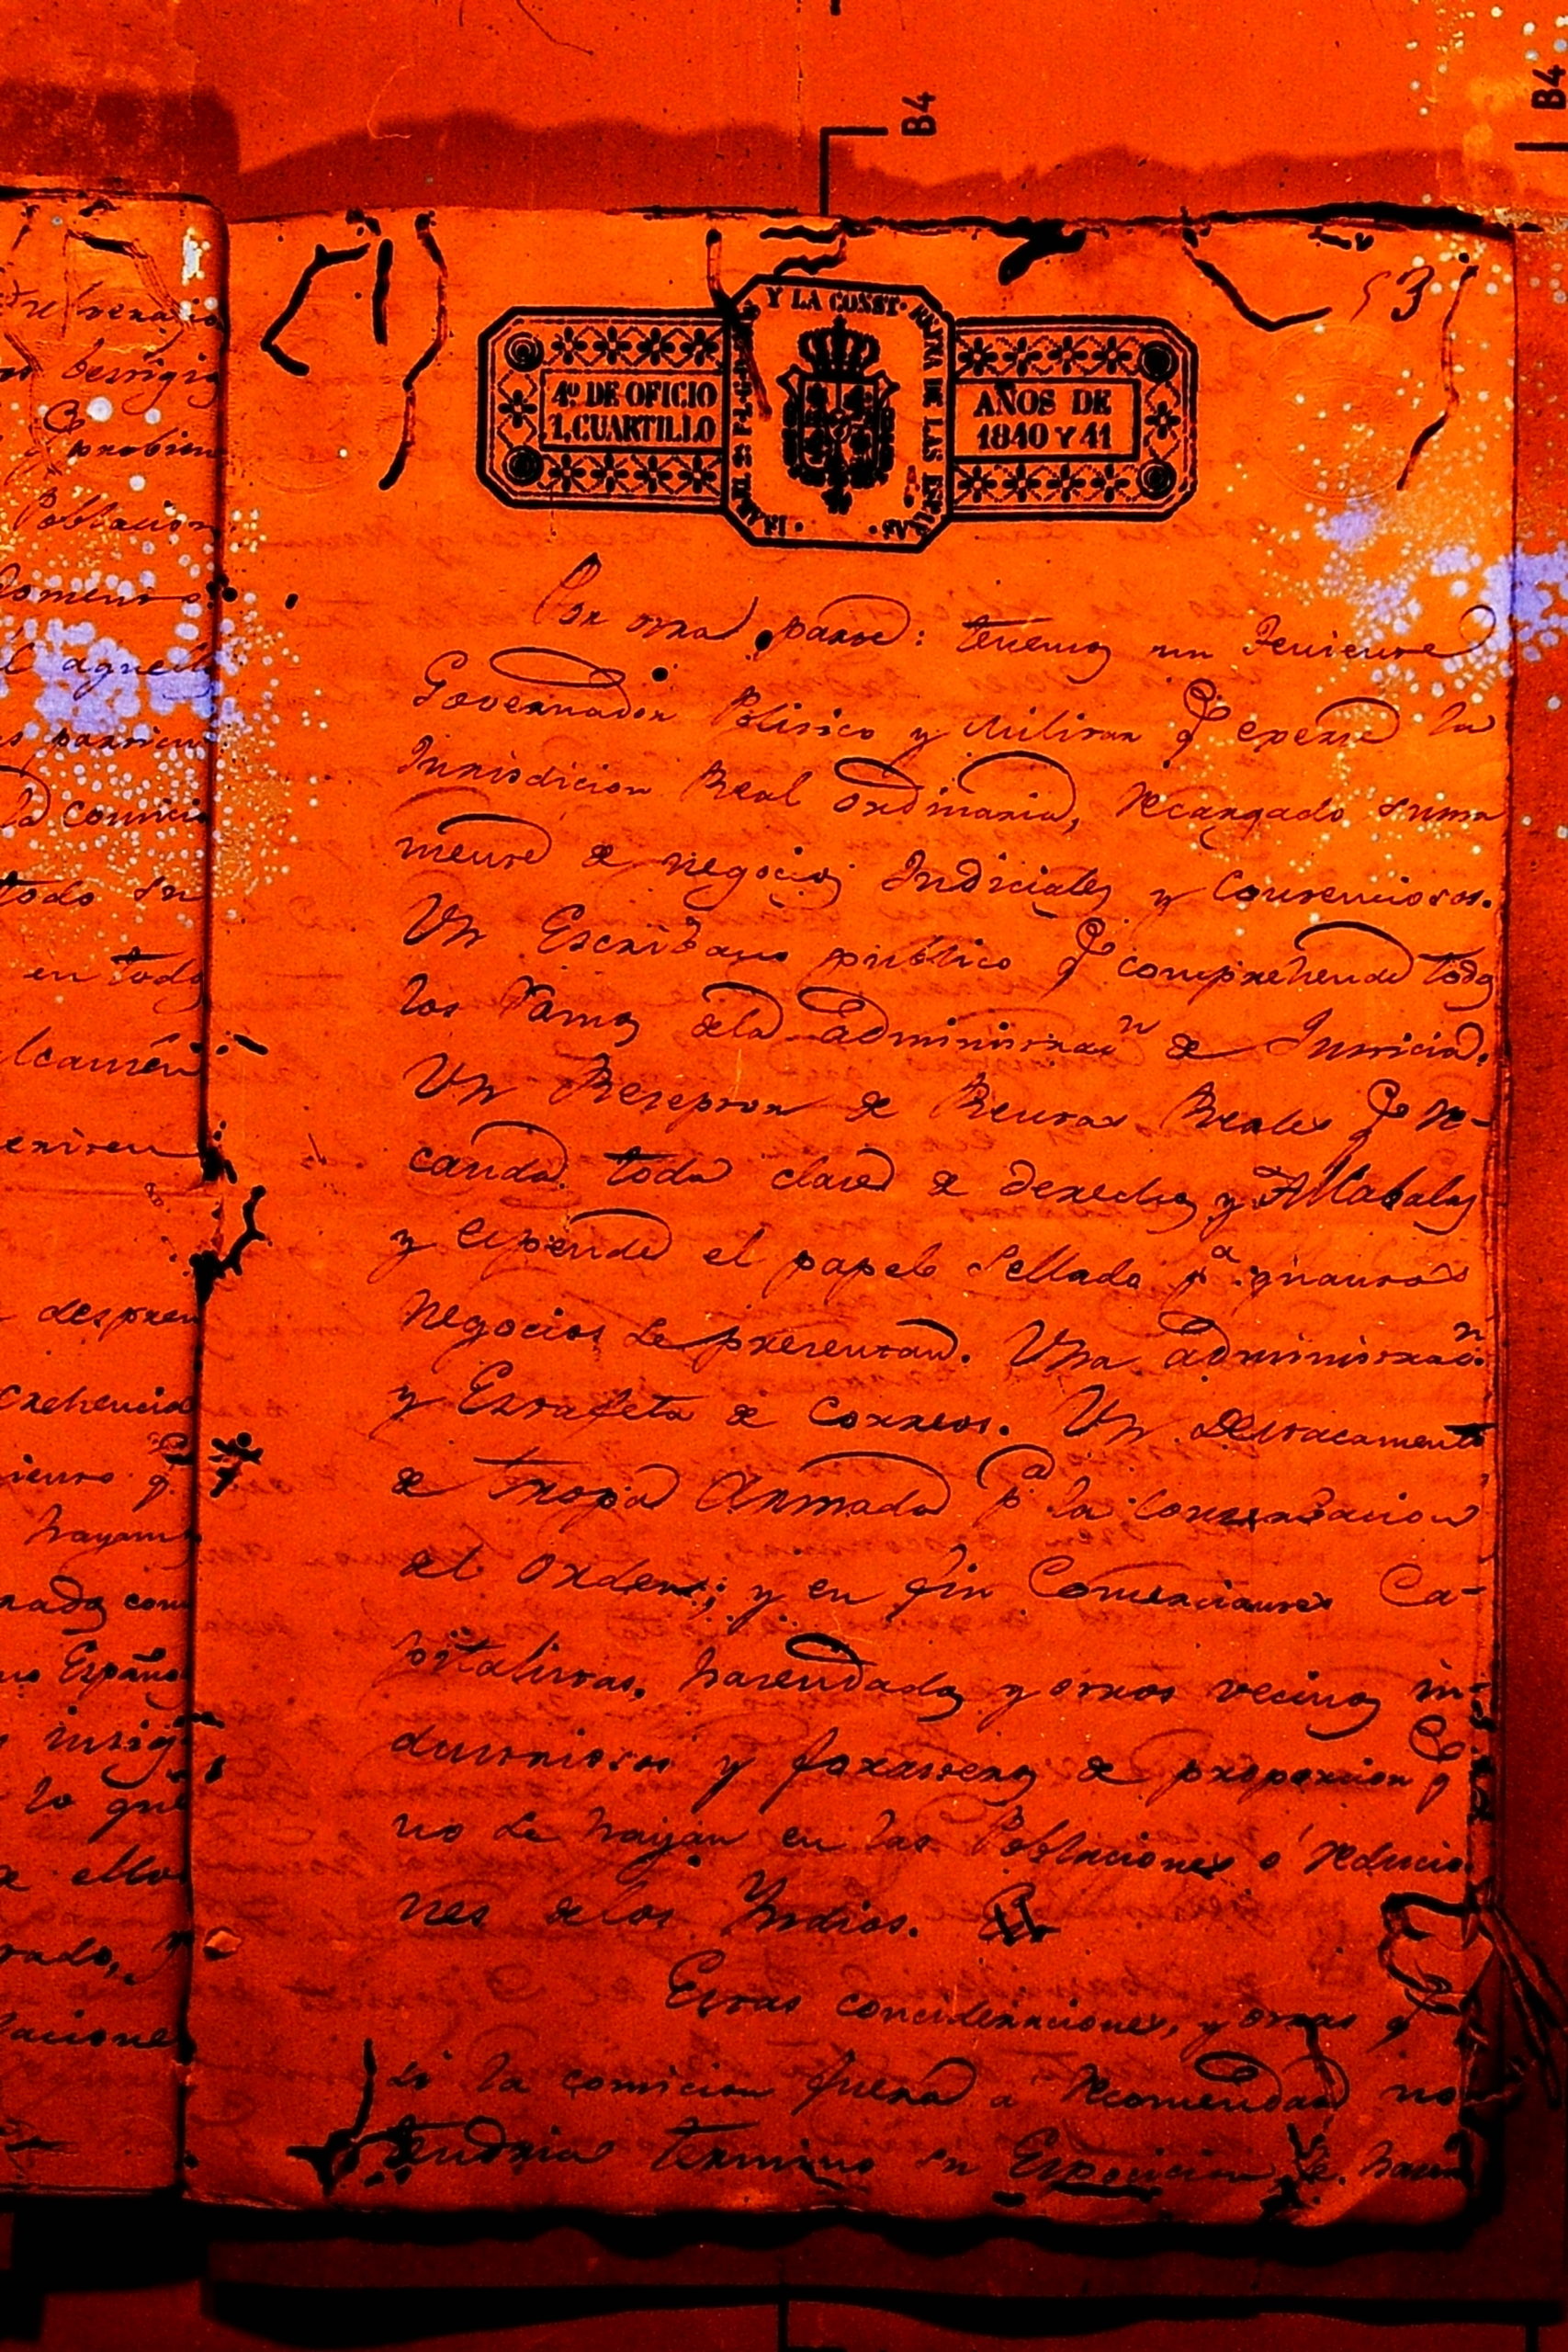 B4
B4
53
4º DE OFICIO
1. CUARTILLO
ISABEL 2ª Y LA CONST. REYNA DE LAS ESPAÑAS
AÑOS DE
1840 Y 41
Por otra parte: tenemos un Teniente
Governador Politico y Militar q. eperse la
Jurisdicion Real ordinaria, recargado suma
mente de negocios Judiciales y Contenciosos.
Un Escribano publico q. comprehende todos
los Ramos dela administracn de Justicia.
Un Reseptor de Rentas Reales q. re-
cauda toda clase de derechos y Alcabalas
y espende el papel Sellado pa. quantos
negocios se presentan. Una administracn
y Estafeta de Correos. Un Destacamento
de tropa Armada pa la Conserbacion
del Orden; y en fin Comerciantes Ca-
pitalistas, hasendados y otros vecinos in-
dustriosos y forasteros de proporcion q.
no se hayan en las Poblaciones ó reducio
nes delos Yndios.
Estas concideraciones, y otras q.
si la comicion fuera á recomendar no
tendria termino su Esposicion, le hacen
Poblacion
aquellos
la comicio
todo su
en todos
despren
hayan
Español
insig
lo que
de ello
laciones